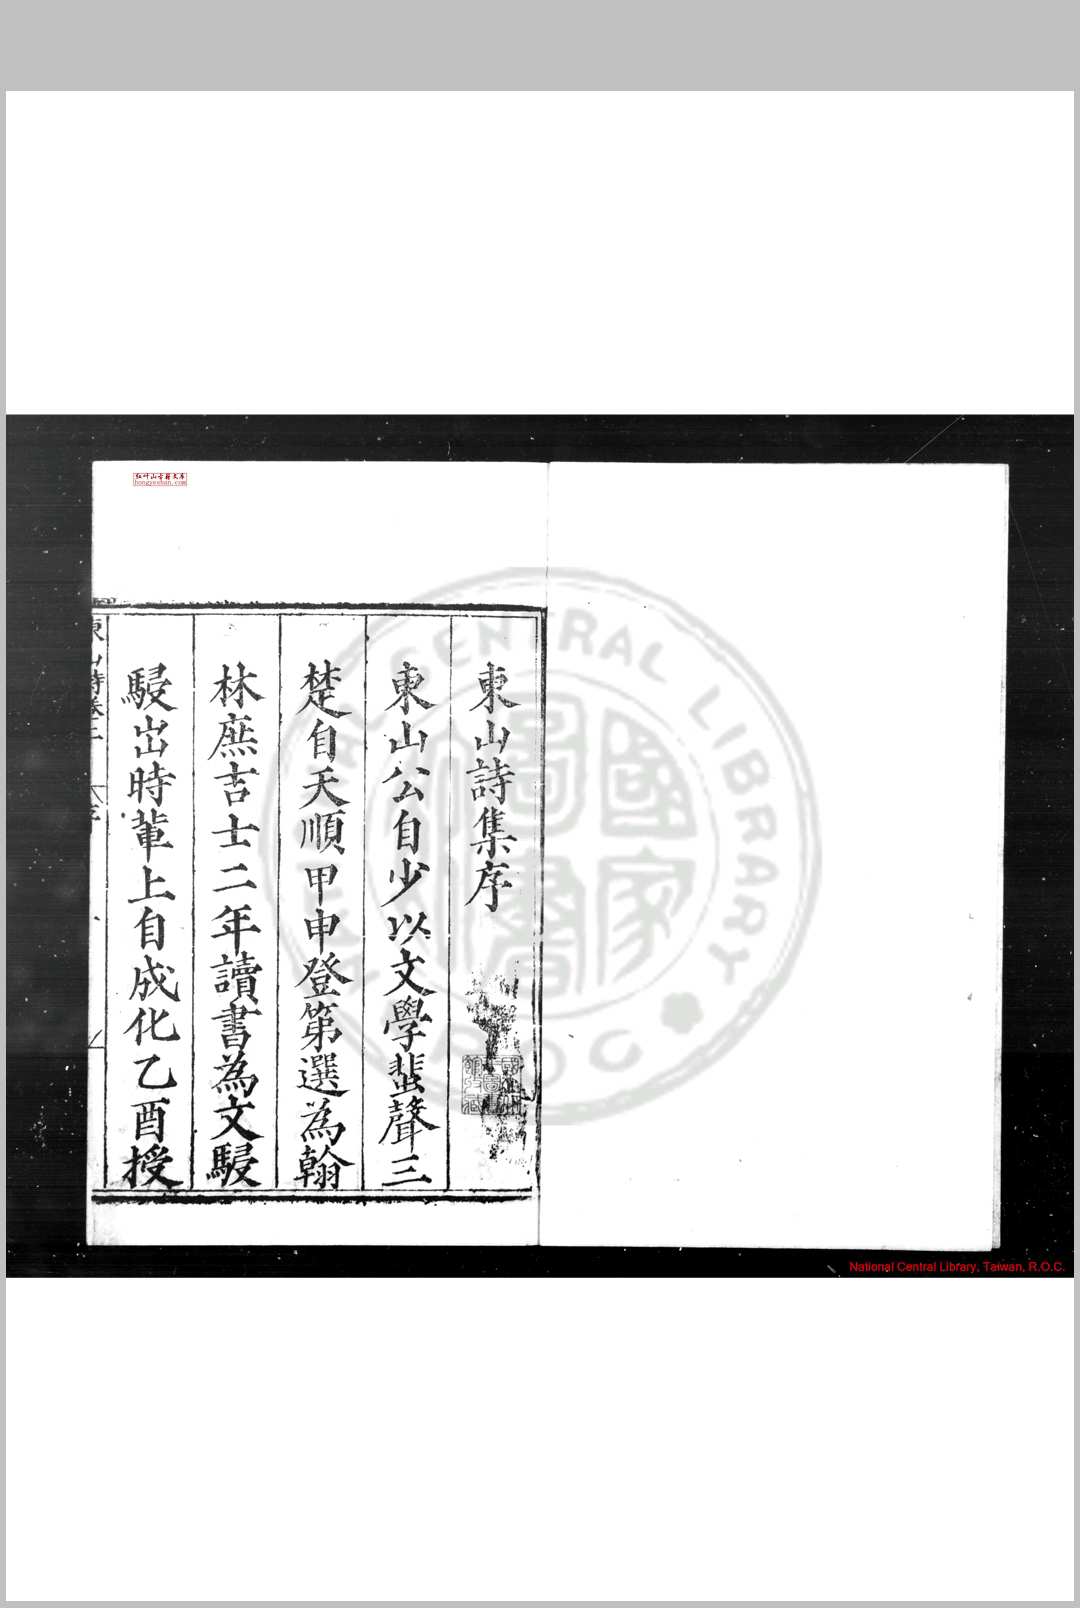 東山詩集序
東山公自少以文學蜚聲三
楚自天順甲申登第選為翰
林庶吉士二年讀書為文駸
駸出時輩上自成化乙酉授
红叶山古籍文库
hongyeshan.com
CENTRAL LIBRARY
R.O.C
國家圖書
National Central Library, Taiwan, R.O.C.